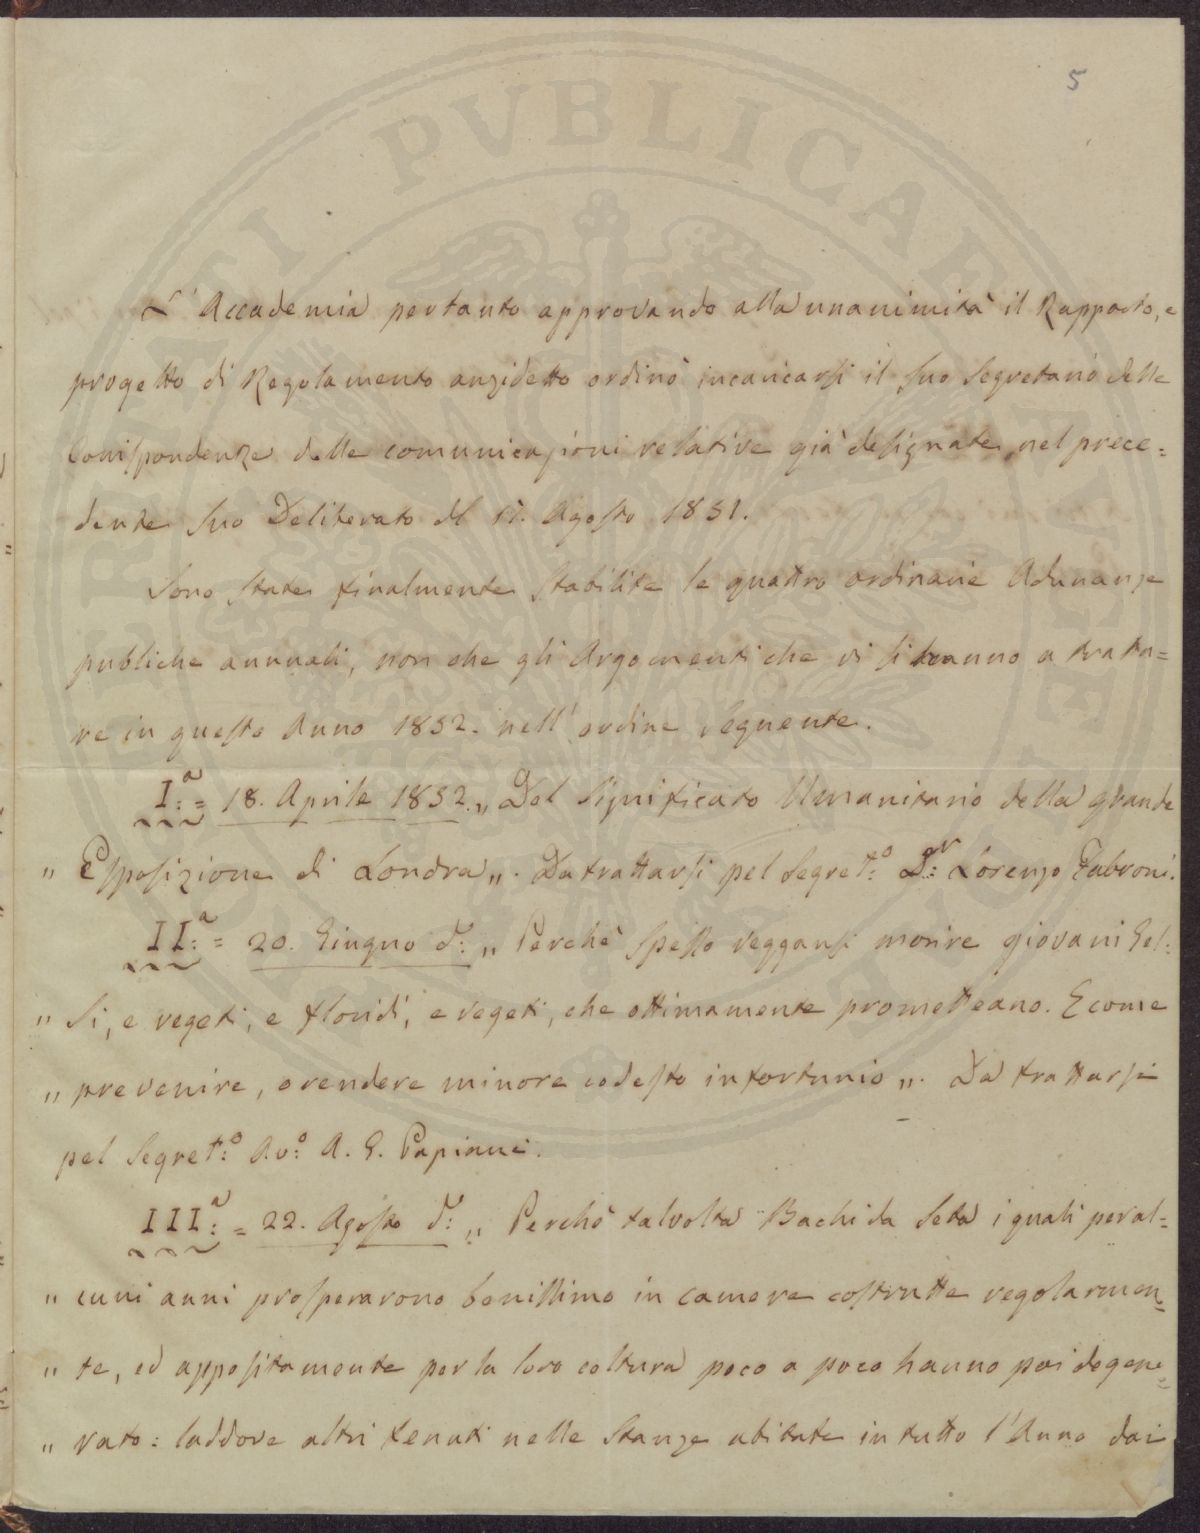 5
L'Accademia pertanto approvando alla unanimità il Rapporto, e
progetto di Regolamento anzidetto ordinò incaricarsi il suo Segretario delle
Corrispondenze delle comunicazioni relative già designate nel prece=
dente suo Deliberato del 17. Agosto 1851.
Sono state finalmente stabilite le quattro ordinarie Adunanze
publiche annuali, non che gli Argomenti che vi si hanno a tratta=
re in questo Anno 1852. nell'ordine seguente.
I:ª = 18. Aprile 1852. „ Del Significato Umanitario della grande
„ Esposizione di Londra „. Da trattarsi pel Segret:º D:r Lorenzo Fabroni.
II:ª = 20. Giugno d: „ Perchè spesso veggansi morire giovani Gel:
„ si, e vegeti, e floridi, e vegeti, che ottimamente prometteano. E come
„ prevenire, o rendere minore codesto infortunio „. Da trattarsi
pel Segret:º Av:º A. G. Papiani.
III:ª = 22. Agosto d: „ Perchè talvolta Bachi da Seta i quali per al=
„ cuni anni prosperarono benissimo in camere costrutte regolarmen=
„ te, ed appositamente per la loro coltura poco a poco hanno poi degene=
„ rato: laddove altri tenuti nelle Stanze abitate in tutto l'Anno dai
PUBLICAE